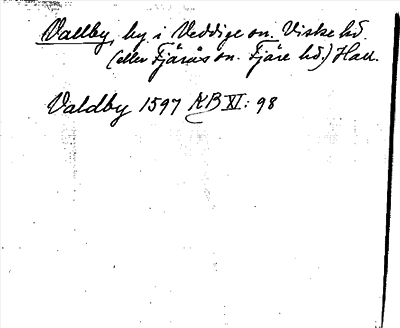 Vallby, by i Veddige sn. Viske hd.
(eller Fjärås sn. Fjäre hd.) Hall.
Valdby 1597 KB XI: 98